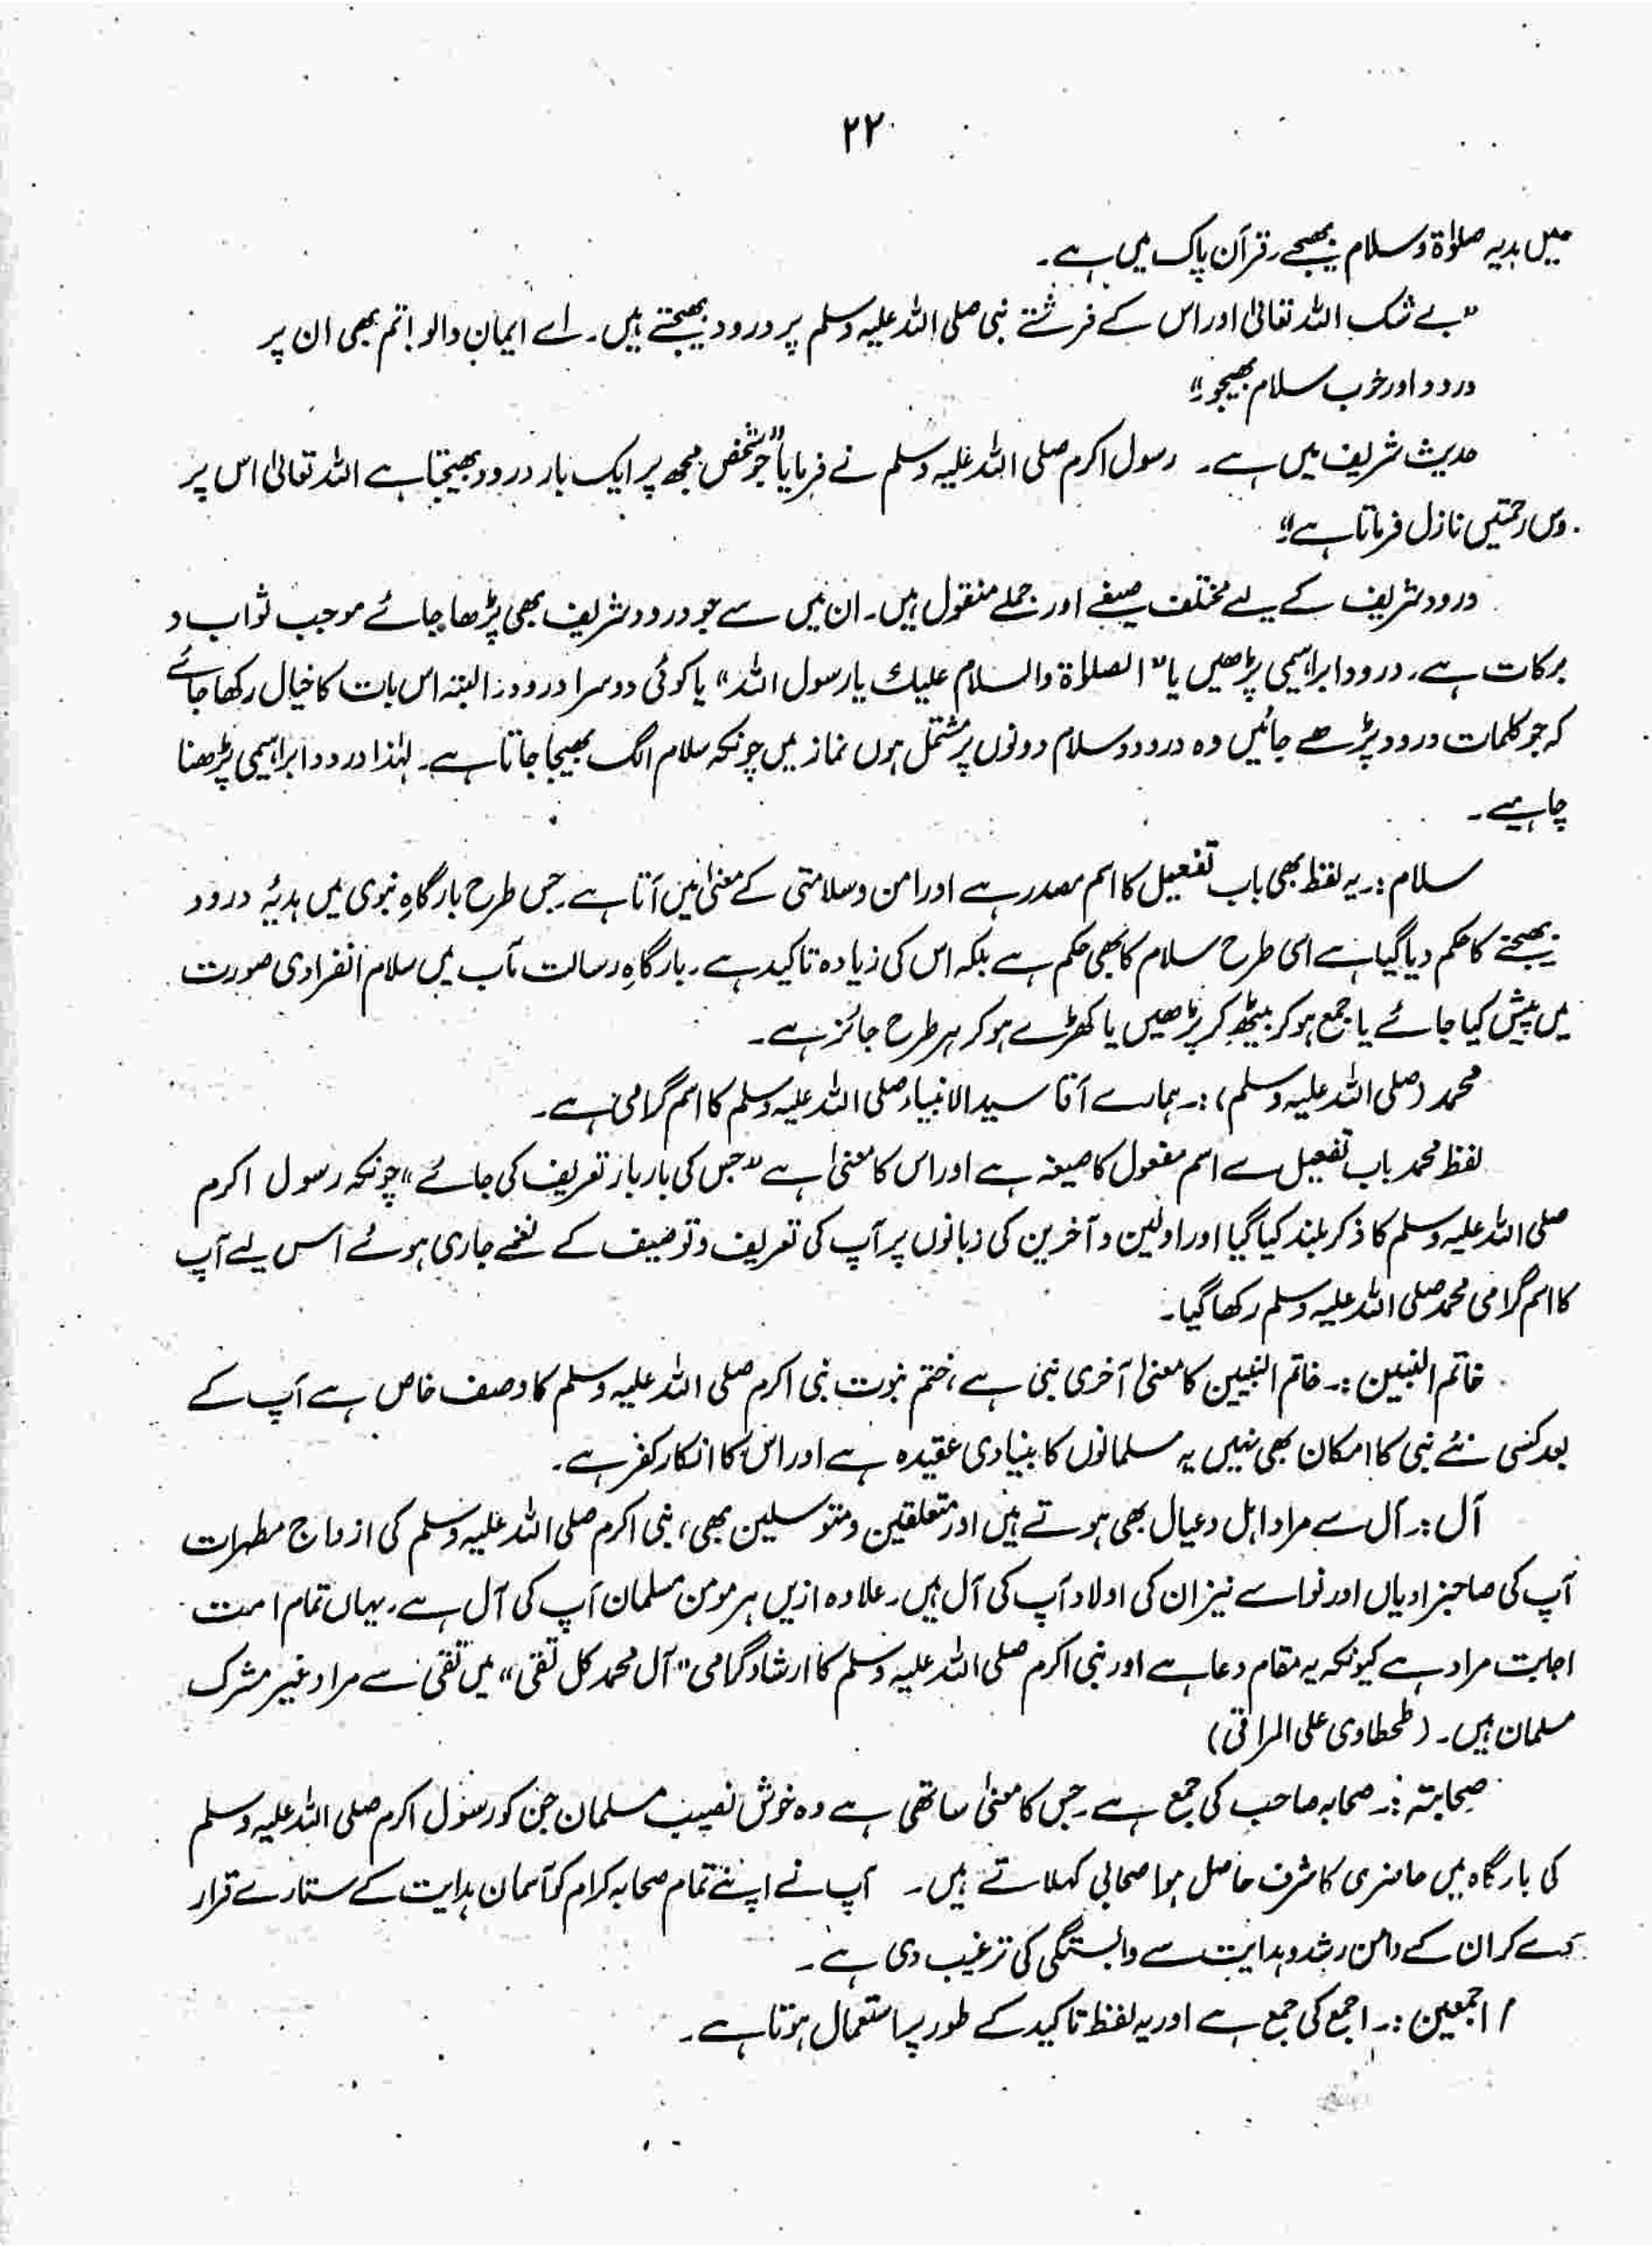 ۲۲
میں ہدیہ صلوٰۃ و سلام بھیجے۔ قرآن پاک میں ہے۔
”بے شک اللہ تعالیٰ اور اس کے فرشتے نبی صلی اللہ علیہ وسلم پر درود بھیجتے ہیں۔ اے ایمان والو! تم بھی ان پر
درود اور خوب سلام بھیجو۔“
حدیث شریف میں ہے۔ رسول اکرم صلی اللہ علیہ وسلم نے فرمایا ”جو شخص مجھ پر ایک بار درود بھیجتا ہے اللہ تعالیٰ اس پر
دس رحمتیں نازل فرماتا ہے۔“
درود شریف کے لیے مختلف صیغے اور جملے منقول ہیں۔ ان میں سے جو درود شریف بھی پڑھا جائے موجب ثواب و
برکات ہے۔ درود ابراہیمی پڑھیں یا ”الصلوٰۃ والسلام علیك یا رسول اللہ“ یا کوئی دوسرا درود۔ البتہ اس بات کا خیال رکھا جائے
کہ جو کلمات درود پڑھے جائیں وہ درود و سلام دونوں پر مشتمل ہوں نماز میں چونکہ سلام الگ بھیجا جاتا ہے۔ لہٰذا درود ابراہیمی پڑھنا
چاہیے۔
سلام:۔ یہ لفظ بھی باب تفعیل کا اسم مصدر ہے اور امن و سلامتی کے معنیٰ میں آتا ہے۔ جس طرح بارگاہِ نبوی میں ہدیۂ درود
بھیجنے کا حکم دیا گیا ہے اسی طرح سلام کا بھی حکم ہے بلکہ اس کی زیادہ تاکید ہے۔ بارگاہِ رسالت مآب میں سلام انفرادی صورت
میں پیش کیا جائے یا جمع ہو کر بیٹھ کر پڑھیں یا کھڑے ہو کر ہر طرح جائز ہے۔
محمد (صلی اللہ علیہ وسلم):۔ ہمارے آقا سید الانبیاء صلی اللہ علیہ وسلم کا اسم گرامی ہے۔
لفظ محمد باب تفعیل سے اسم مفعول کا صیغہ ہے اور اس کا معنیٰ ہے ”جس کی بار بار تعریف کی جائے“ چونکہ رسول اکرم
صلی اللہ علیہ وسلم کا ذکر بلند کیا گیا اور اولین و آخرین کی زبانوں پر آپ کی تعریف و توصیف کے نغمے جاری ہوئے اس لیے آپ
کا اسم گرامی محمد صلی اللہ علیہ وسلم رکھا گیا۔
خاتم النبیین:۔ خاتم النبیین کا معنیٰ آخری نبی ہے، ختم نبوت نبی اکرم صلی اللہ علیہ وسلم کا وصف خاص ہے آپ کے
بعد کسی نئے نبی کا امکان بھی نہیں یہ مسلمانوں کا بنیادی عقیدہ ہے اور اس کا انکار کفر ہے۔
آل:۔ آل سے مراد اہل و عیال بھی ہوتے ہیں اور متعلقین و متوسلین بھی، نبی اکرم صلی اللہ علیہ وسلم کی ازواج مطہرات
آپ کی صاحبزادیاں اور نواسے نیز ان کی اولاد آپ کی آل ہیں۔ علاوہ ازیں ہر مومن مسلمان آپ کی آل ہے۔ یہاں تمام امت
اجابت مراد ہے کیونکہ یہ مقام دعا ہے اور نبی اکرم صلی اللہ علیہ وسلم کا ارشاد گرامی ”آل محمد کل تقی“ میں تقی سے مراد غیر مشرک
مسلمان ہیں۔ (طحطاوی علی المراقی)
صحابتہ:۔ صحابہ صاحب کی جمع ہے۔ جس کا معنیٰ ساتھی ہے وہ خوش نصیب مسلمان جن کو رسول اکرم صلی اللہ علیہ وسلم
کی بارگاہ میں حاضری کا شرف حاصل ہوا صحابی کہلاتے ہیں۔ آپ نے اپنے تمام صحابہ کرام کو آسمان ہدایت کے ستارے قرار
دے کر ان کے دامن رشد و ہدایت سے وابستگی کی ترغیب دی ہے۔
اجمعین:۔ اجمع کی جمع ہے اور یہ لفظ تاکید کے طور پر استعمال ہوتا ہے۔